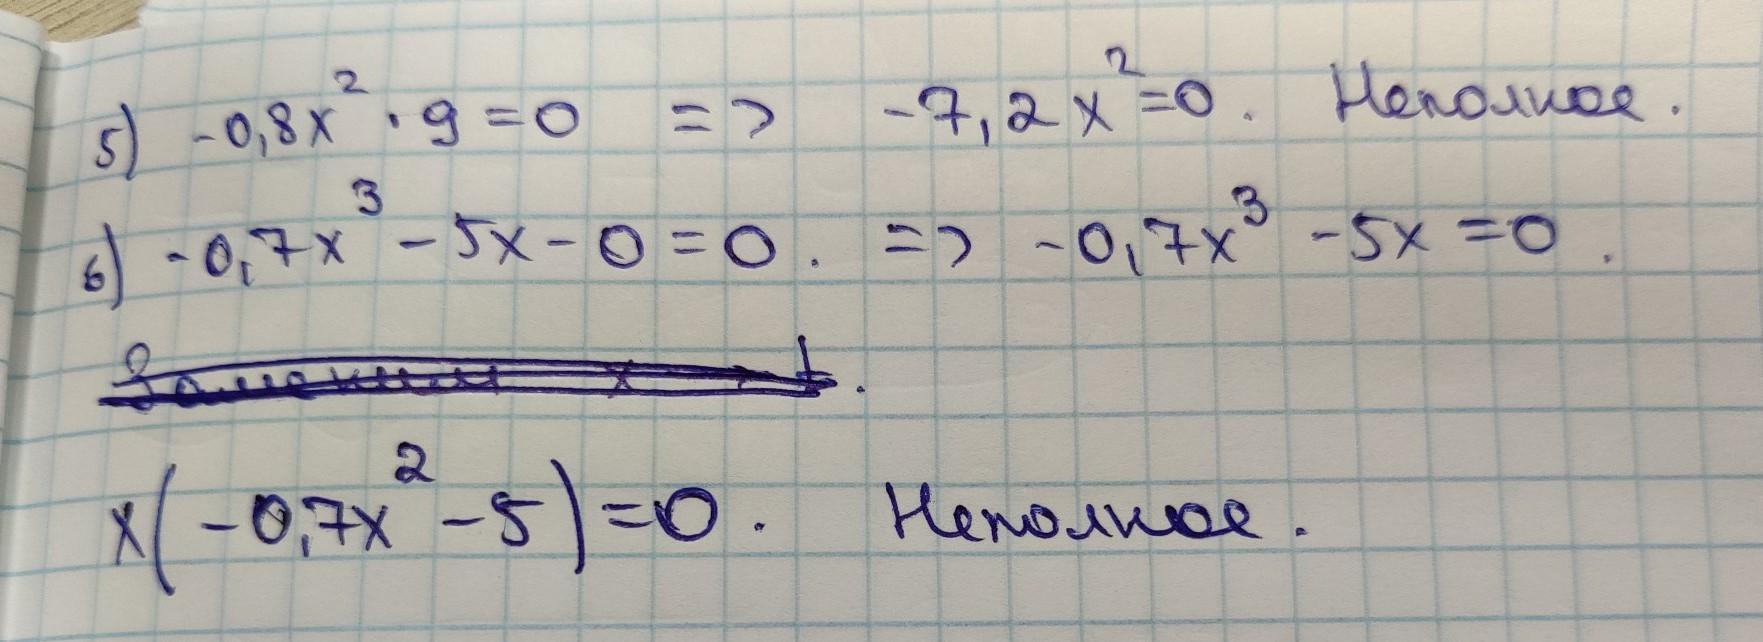 5) -0,8x² · 9 = 0 => -7,2x² = 0. Неполное.
6) -0,7x³ - 5x - 0 = 0. => -0,7x³ - 5x = 0.
x(-0,7x² - 5) = 0. Неполное.